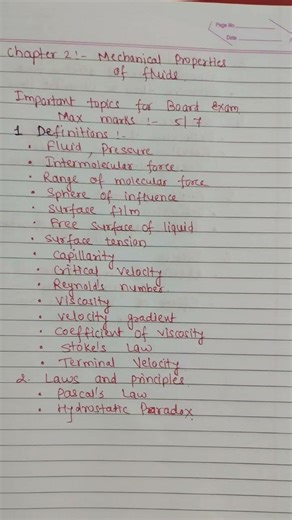 Page No:
Date
Chapter 2:- Mechanical Properties
of fluids.
Important topics for Board exam
Max marks :- 5/7
1 Definitions :-
• Fluid, Pressure
• Intermolecular force.
• Range of molecular force
• Sphere of influence
• Surface film
• Free surface of liquid
• Surface tension
• Capillarity
• Critical velocity
• Reynold's number
• Viscosity
• velocity gradient
• coefficient of viscosity
• Stoke's Law
• Terminal Velocity
2. Laws and principles
• Pascal's Law
• Hydrostatic Paradox.